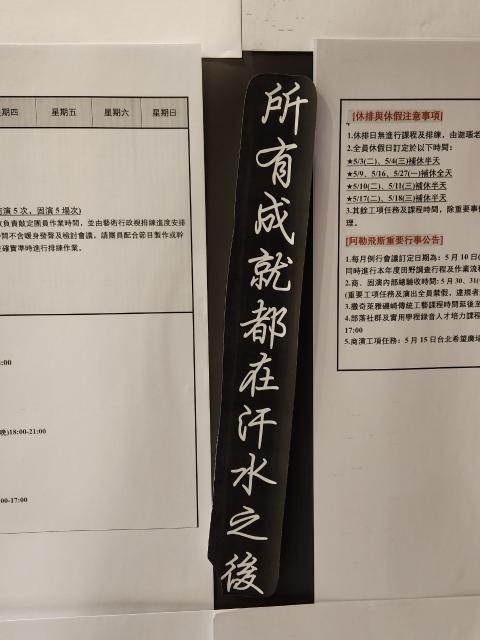 星期四 星期五 星期六 星期日
演 5 次，因演 5 場次)
負責敲定團員作業時間，並由藝術行政視排練進度安排
間不含暖身發聲及檢討會議。請團員配合節目製作或幹
確實準時進行排練作業。
:00
晚)18:00-21:00
00-17:00
所有成就都在汗水之後
[休排與休假注意事項]
1.休排日無進行課程及排練，由迦瑙
2.全員休假日訂定於以下時間：
★5/3(二)、5/4(三)補休半天
★5/9、5/16、5/27(一)補休全天
★5/10(二)、5/11(三)補休半天
★5/17(二)、5/18(三)補休半天
3.其餘工項任務及課程時間，除重要事
理。
[阿勒飛斯重要行事公告]
1.每月例行會議訂定日期為：5 月 10 日(
同時進行本年度田野調查行程及作業流
2.商、因演內部總驗收時間: 5 月 30、31(
(重要工項任務及演出全員禁假，違規者
3.撒奇萊雅磯崎傳統工藝課程時間延後至
4.部落社群及實用學程錄音人才培力課
17:00
5.商演工項任務：5 月 15 日台北希望廣